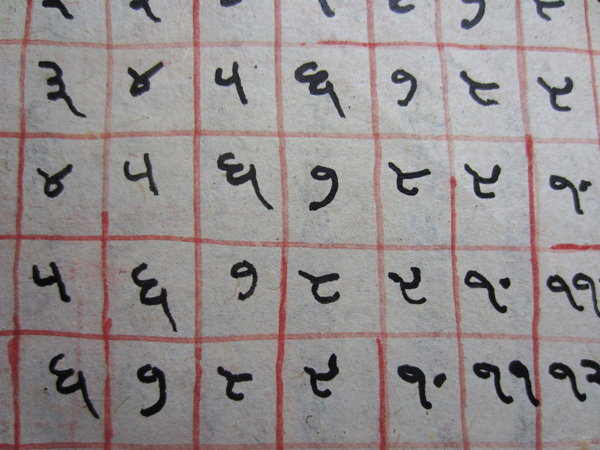 ३ ४ ५ ६ ७ ८ ९
४ ५ ६ ७ ८ ९ १०
५ ६ ७ ८ ९ १० ११
६ ७ ८ ९ १० ११ १२